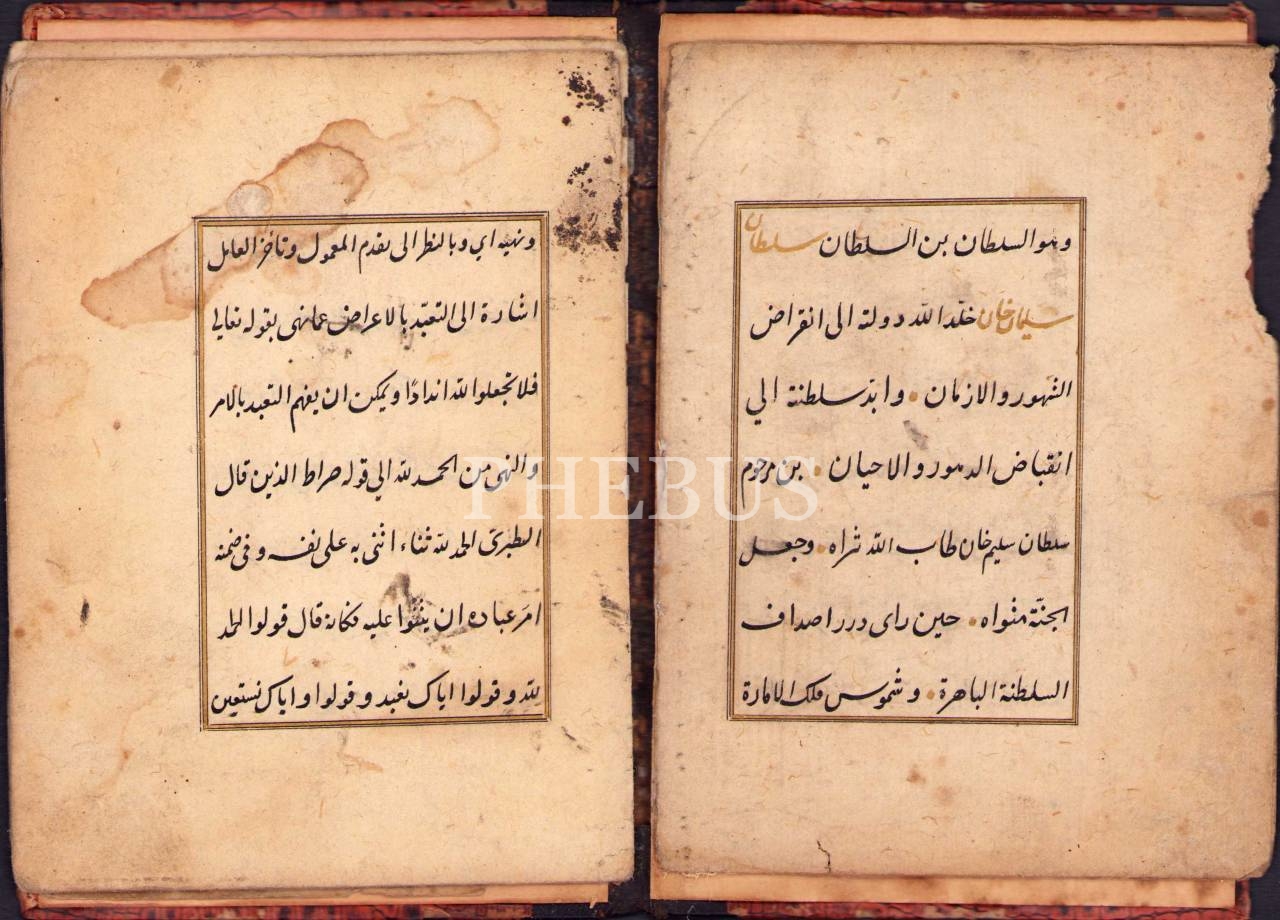 وهو السلطان بن السلطان سلطان
سليمان خان خلّد الله دولته الى انقراض
الشهور والازمان . وابّد سلطنته الي
انقباض الدهور والاحيان . بن مرحوم
سلطان سليم خان طاب الله ثراه . وجعل
الجنّة مثواه . حين راى درر اصداف
السلطنة الباهرة . وشموس فلك الامارة
ونهيه اي وبالنظر الى تقدم المعمول وتأخر العامل
اشارة الى التعبّد بالاعراض عما نهى بقوله تعالي
فلا تجعلوا لله اندادًا ويمكن ان يفهم التعبد بالامر
والنهى من الحمد لله الي قوله صراط الذين قال
الطبرى الحمد لله ثناء اثنى به على نفسه وفى ضمنه
امر عباده ان يثنوا عليه فكانه قال قولوا الحمد
لله وقولوا اياك نعبد وقولوا واياك نستعين
PHEBUS